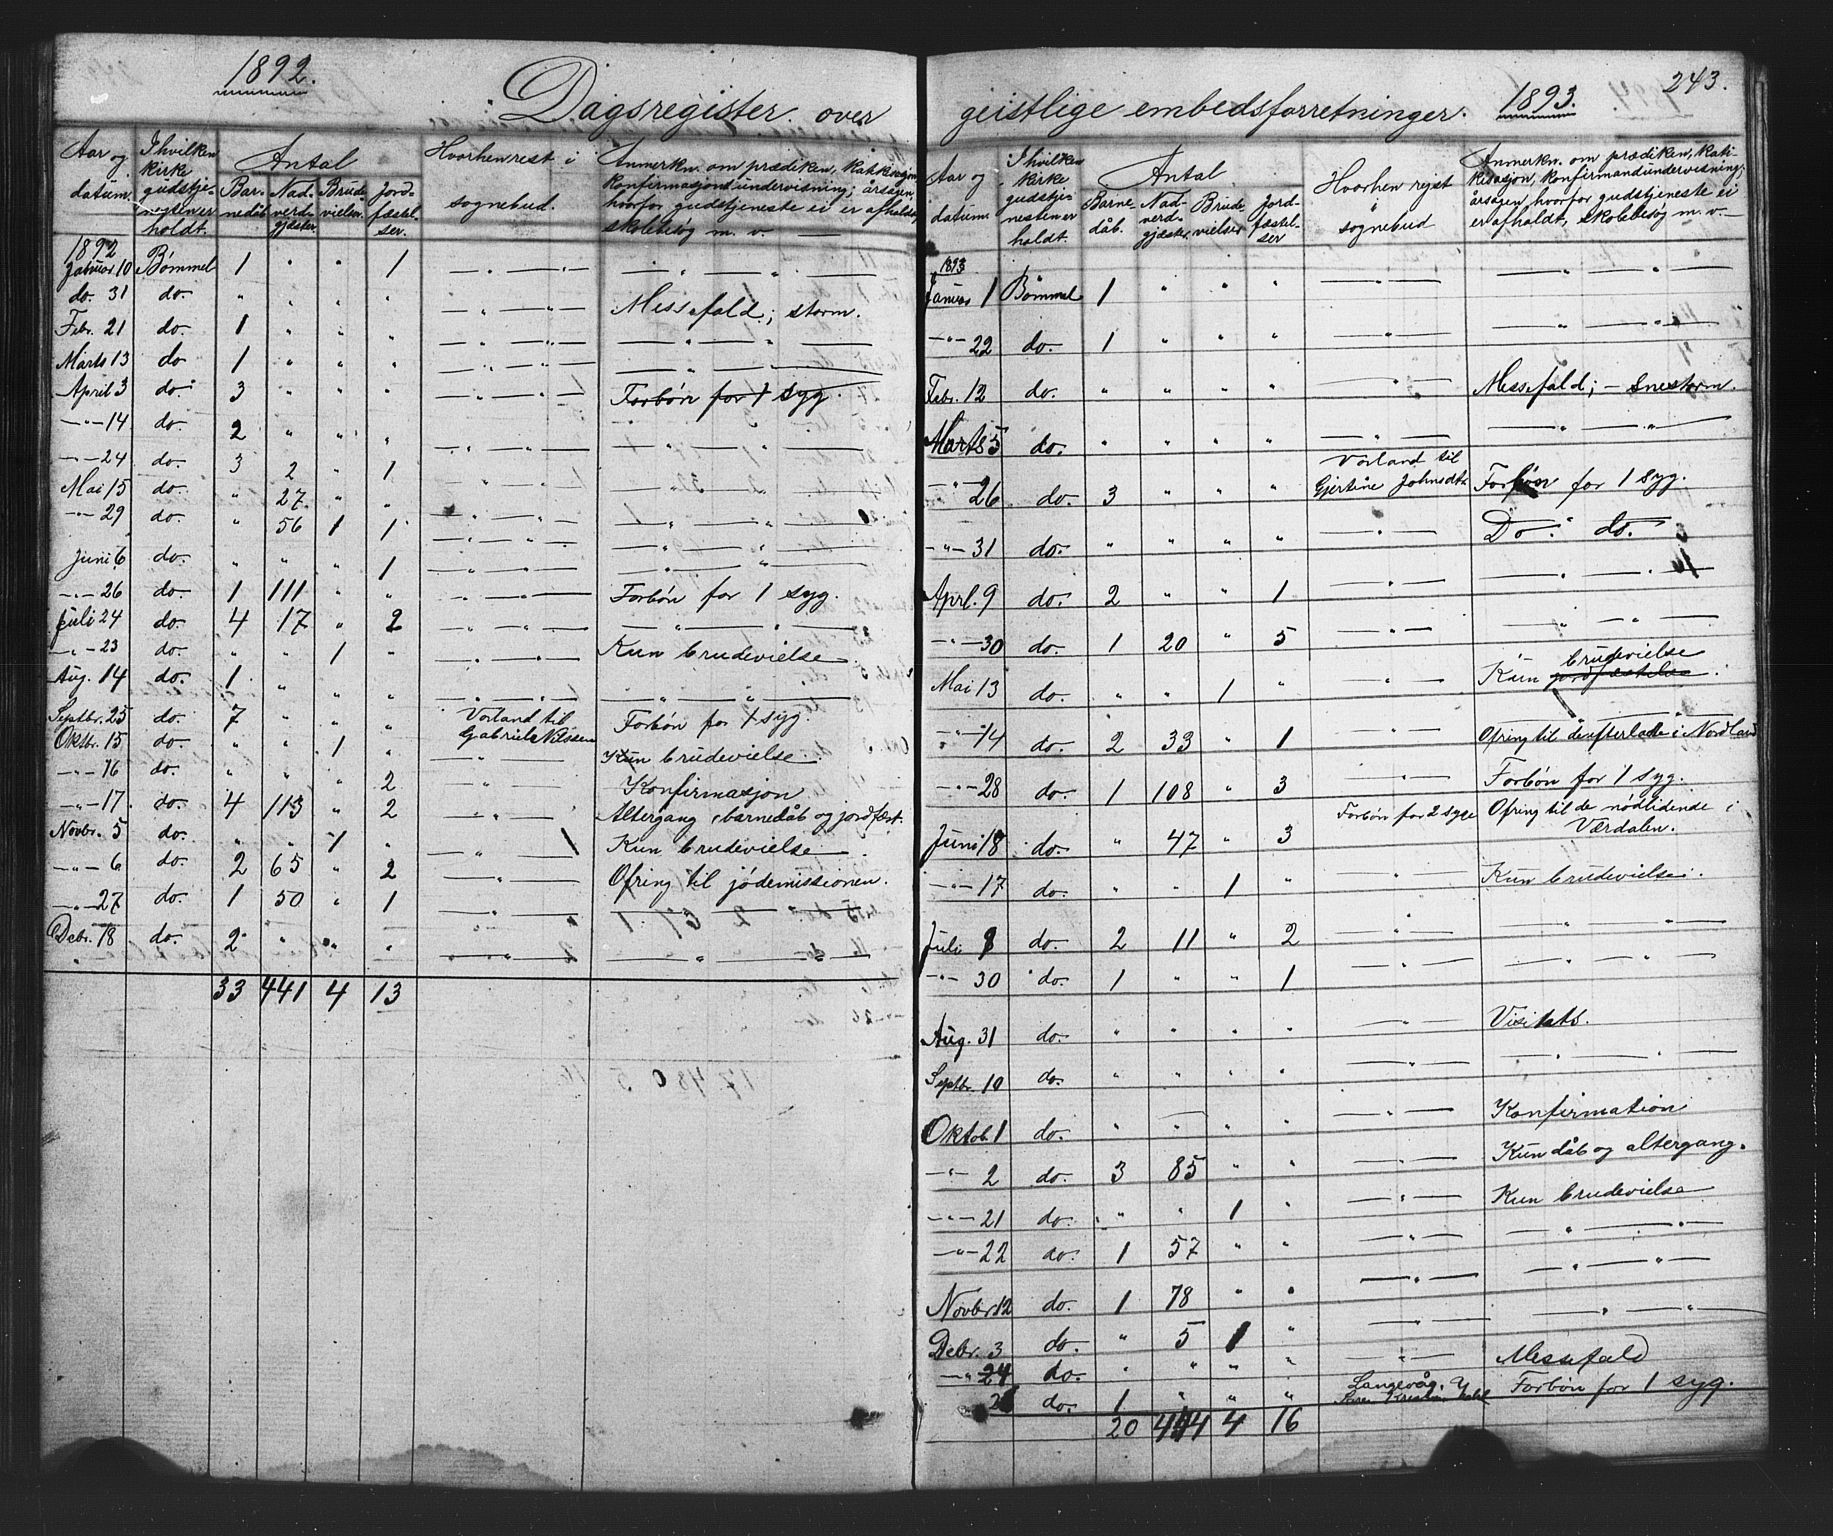 1892.
Dagsregister over
Aar og datum. | I hvilken kirke gudstjenesten er holdt. | Antal | Hvorhen rest i sognebud. | Anmerkn. om prædiken, katekisasjon, konfirmasjonsundervisning; årsagen, hvorfor gudstjeneste ei er afholdt, skolebesøg m. v.
Barnedåb | Nadverdgjæster | Brudevielser | Jordfæstelser.
1892
Januar 10 | Bømmel | 1 | " | " | 1 | — " — " — | — " — " —
do. 31 | do. | " | " | " | " | — " — " — | Messefald; storm.
Febr. 21 | do. | 1 | " | " | " | — " — " — | — " — " —
Marts 13 | do | 1 | " | " | " | — " — " — | — " — " —
April 3 | do. | 3 | " | " | " | — " — " — | Forbøn for 1 syg.
— " — 14 | do. | 2 | " | " | " | — " — " — | — " — " —
— " — 24 | do. | 3 | 2 | " | 1 | — " — " — | — " — " —
Mai 15 | do. | " | 27. | " | " | — " — " — | — " — " —
— " — 29 | do. | " | 56 | 1 | 1 | — " — " — | — " — " —
Juni 6 | do. | " | " | " | 1 | — " — " — | — " — " —
— " — 26 | do. | 1 | 111 | " | " | — " — " — | Forbøn for 1 syg.
Juli 24 | do. | 4 | 17 | " | 2 | — " — " — | — " — " —
— " — 23 | do. | " | " | 1 | " | — " — " — | Kun brudevielse
Aug. 14 | do. | 1 | " | " | " | — " — " — | — " — " —
Septbr. 25 | do. | 7 | " | " | " | Vorland til Gabriel Nilssen | Forbøn for 1 syg.
Oktbr. 15 | do. | " | " | 1 | " | — " — | Kun brudevielse.
— " — 16 | do. | " | " | " | 2 | — " — | Konfirmasjon
— " — 17 | do. | 4 | 113 | " | 2 | — " — | Altergang, barnedåb og jordfæst.
Novbr. 5 | do. | " | " | 1 | " | — " — | Kun brudevielse
— " — 6 | do. | 2 | 65 | " | 2 | — " — | Ofring til jødemissionen.
— " — 27 | do. | 1 | 50 | " | 1 | — " —
Debr. 18 | do. | 2 | " | " | " | — " — " — | — " — " —
33 | 441 | 4 | 13
243.
geistlige embedsforretninger. 1893.
Aar og datum. | I hvilken kirke gudstjenesten er holdt. | Antal | Hvorhen rejst i sognebud | Anmerkn. om prædiken, katikisasjon, konfirmandundervisning; årsagen, hvorfor gudstjeneste ei er afholdt, skolebesøg m. v. —
Barnedåb. | Nadverdgjæster | Brudevielser | Jordfæstelser
1893
Januar 1 | Bømmel | 1 | " | " | " | — " — | — " — " —
— " — 22 | do. | 1 | " | " | " | — " — | — " — " —
Febr. 12 | do. | " | " | " | " | — " — | Messefald; — snestorm.
Marts 5 | do. | " | " | " | " | — " — | — " — " —
— " — 26 | do. | 3 | " | " | " | Vorland til Gjertine Johnsdtr | Forbøn for 1 syg.
— " — 31 | do. | " | " | " | " | — " — | Do. do.
Aprl. 9 | do. | 2 | " | " | 1 | — " — | — " — " —
— " — 30 | do. | 1 | 20 | " | 5 | — " — | — " — " —
Mai 13 | do. | " | " | 1 | " | — " — | Kun brudevielse jordfæstelse.
— " — 14 | do. | 2 | 33 | " | 1 | — " — | Ofring til de efterladte i Nordland
— " — 28 | do. | 1 | 108 | " | 3 | — " — | Forbøn for 1 syg.
Juni 18 | do. | " | 47 | " | 3 | Forbøn for 2 syge | Ofring til de nødlidende i Værdalen.
— " — 17 | do. | " | " | 1 | " | — " — | Kun brudevielse.
Juli 9 | do. | 2 | 11 | " | 2 | — " — | — " — " —
— " — 30 | do. | 1 | " | " | 1 | — " — | — " — " —
Aug. 31 | do. | " | " | " | " | — " — | Visitats.
Septbr. 10 | do. | " | " | " | " | — " — | — " — " —
Oktob. 1 | do. | " | " | " | " | — " — | Konfirmation
— " — 2 | do. | 3 | 85 | " | " | — " — | Kun dåb og altergang.
— " — 21 | do. | " | " | 1 | " | — " — | Kun brudevielse
— " — 22 | do. | 1 | 57 | " | " | — " — | — " — " —
Novbr. 12 | do. | 1 | 78 | " | " | — " — | — " — " —
Debr. 3 | do. | " | 5 | 1 | " | — " — | — " — " —
— " — 24 | do. | " | " | " | " | — " — | Messefald
26 | do. | 1 | " | " | " | Langevåg | Forbøn for 1 syg.
20 | 444 | 4 | 16